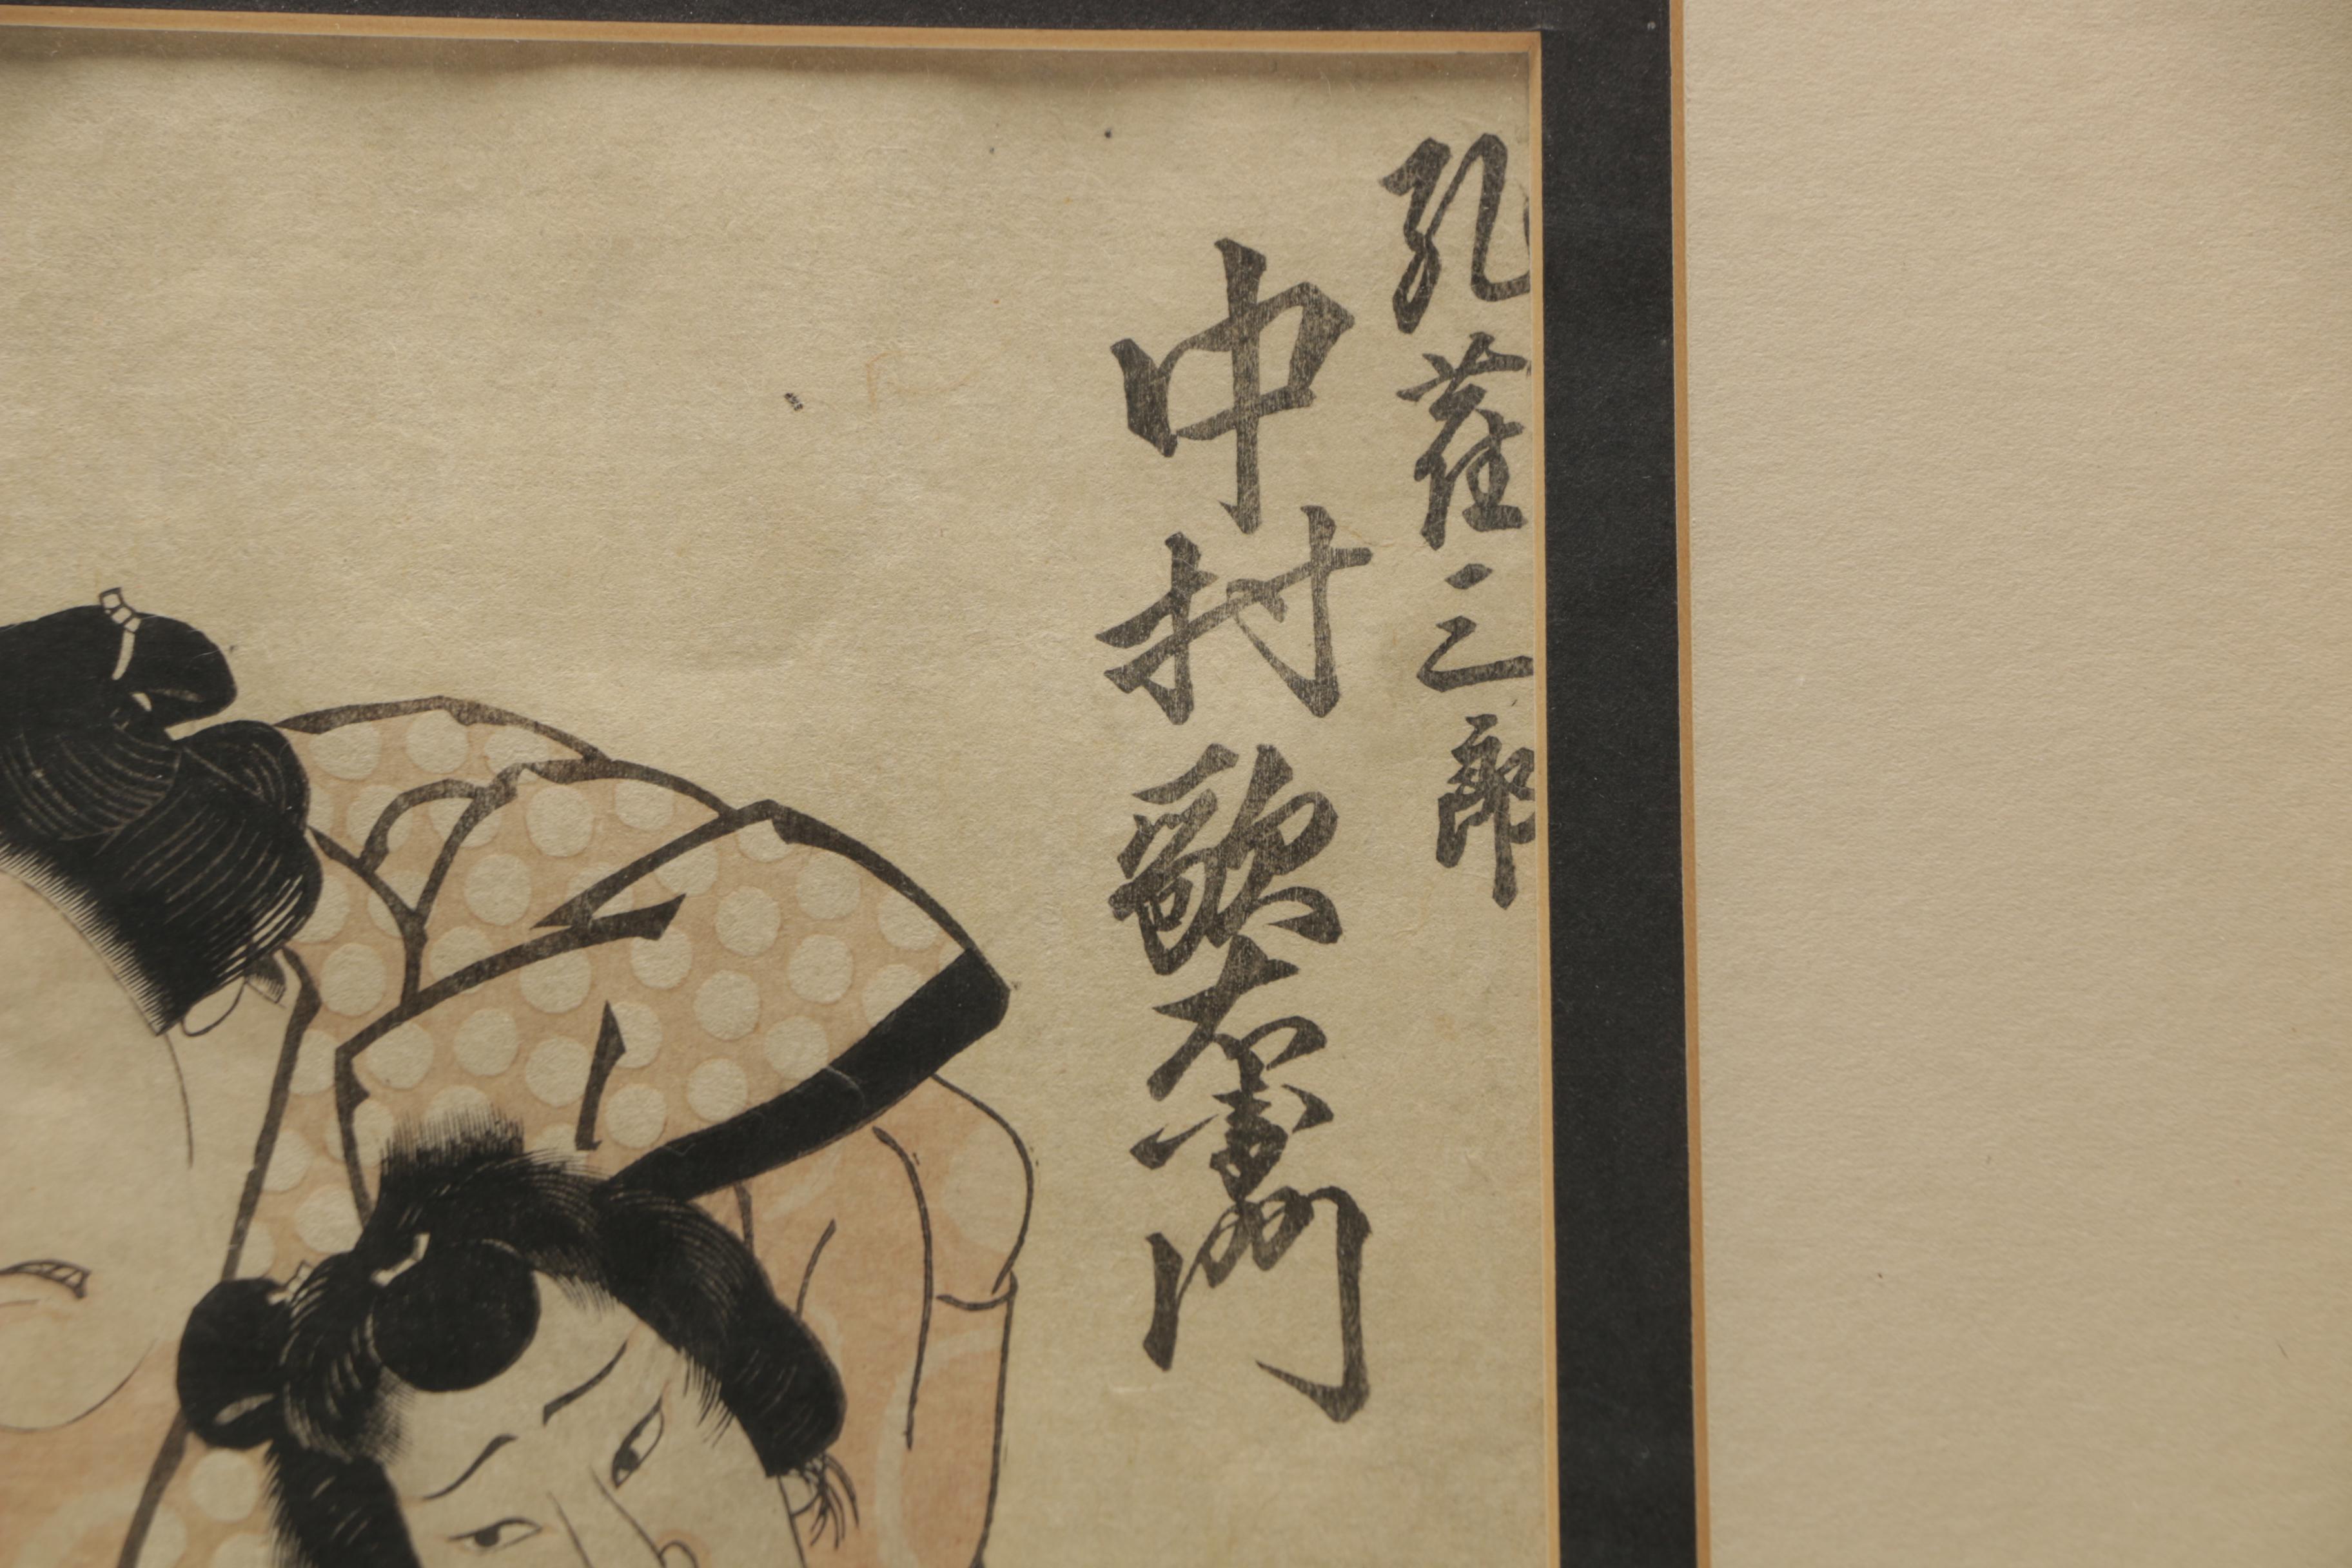 孔雀三郎
中村歌右衛門